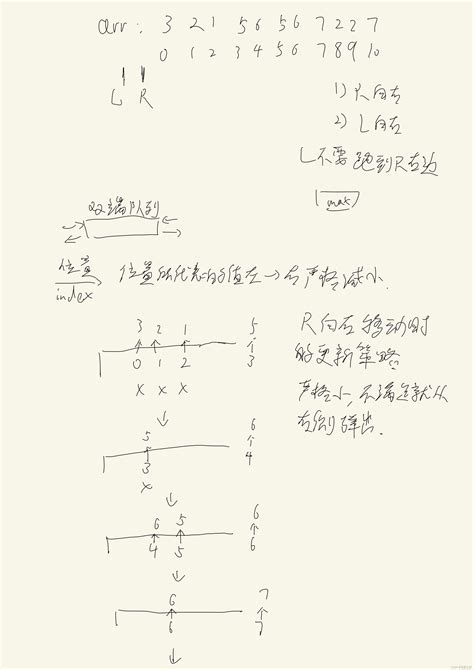 arr: 3 2 1 5 6 5 6 7 2 2 7
0 1 2 3 4 5 6 7 8 9 10
L R
1) R向右
2) L向右
L不要跑到R右边
max
双端队列
位置
index
位置所代表的值左→右严格减小.
3 2 1 5
0 1 2 3
x x x
R向右移动时
的更新策略
严格小,不满足就从
右侧弹出.
5 6
3 4
x
6 5 6
4 5 6
6 7
6 7